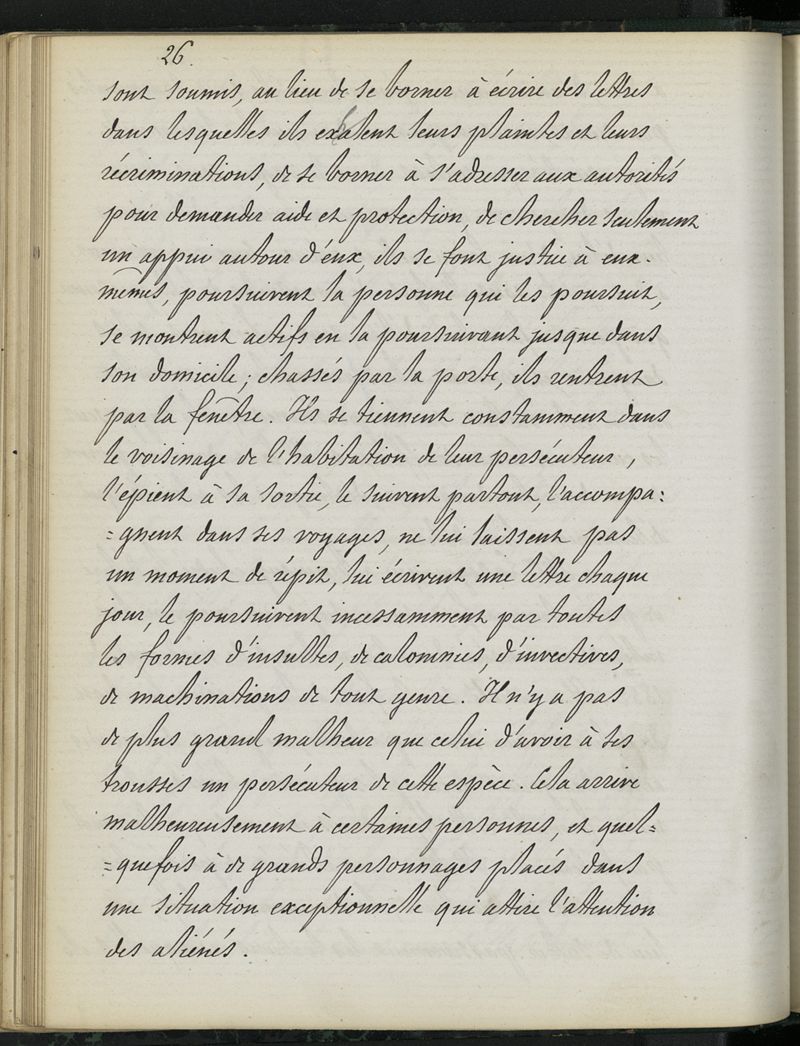 26.
sont soumis, au lieu de se borner à écrire des lettres
dans lesquelles ils exalent leurs plaintes et leurs
récriminations, de se borner à s'adresser aux autorités
pour demander aide et protection, de chercher seulement
un appui autour d'eux, ils se font justice à eux-
mêmes, poursuivent la personne qui les poursuit,
se montrent actifs en la poursuivant jusque dans
son domicile ; chassés par la porte, ils rentrent
par la fenêtre. Ils se tiennent constamment dans
le voisinage de l'habitation de leur persécuteur,
l'épient à sa sortie, le suivent partout, l'accompa=
=gnent dans ses voyages, ne lui laissent pas
un moment de répit, lui écrivent une lettre chaque
jour, le poursuivent incessamment par toutes
les formes d'insultes, de calomnies, d'invectives,
de machinations de tout genre. Il n'y a pas
de plus grand malheur que celui d'avoir à ses
trousses un persécuteur de cette espèce. Cela arrive
malheureusement à certaines personnes, et quel=
=quefois à de grands personnages placés dans
une situation exceptionnelle qui attire l'attention
des aliénés.